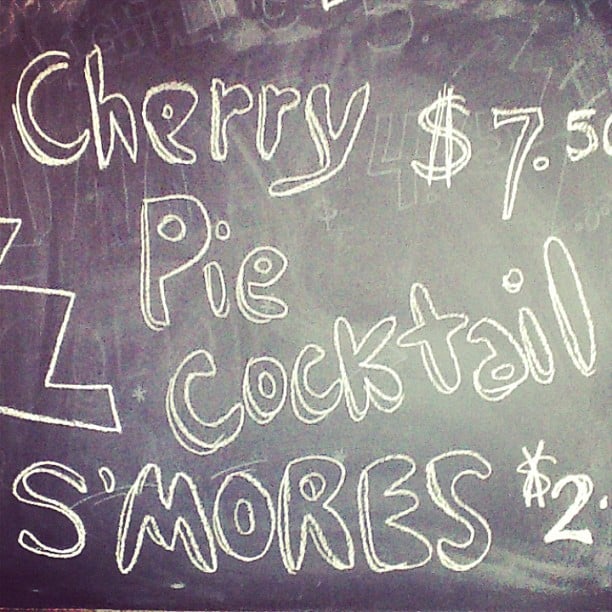 Cherry $7.50
Pie
Cocktail
S'MORES $2.